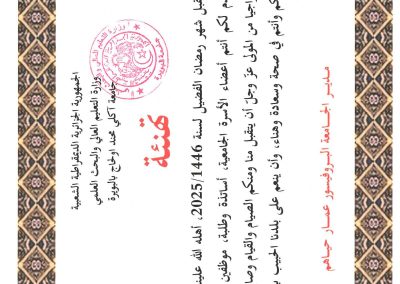 الجمهورية الجزائرية الديمقراطية الشعبية
وزارة التعليم العالي والبحث العلمي
جامعة آكلي محند أولحاج بالبويرة
تهنئة
قبل شهر رمضان الفضيل لسنة 2025/1446، أهله الله علينا
م لكم أنتم أعضاء الأسرة الجامعية، أساتذة وطلبة، موظفين
راجيا من المولى عز وجل أن يتقبل منا ومنكم الصيام والقيام وصا
كم وأنتم في صحة وسعادة وهناء، وأن ينعم على بلدنا الحبيب بـ
مدير الجامعة البروفيسور عمار حياهم